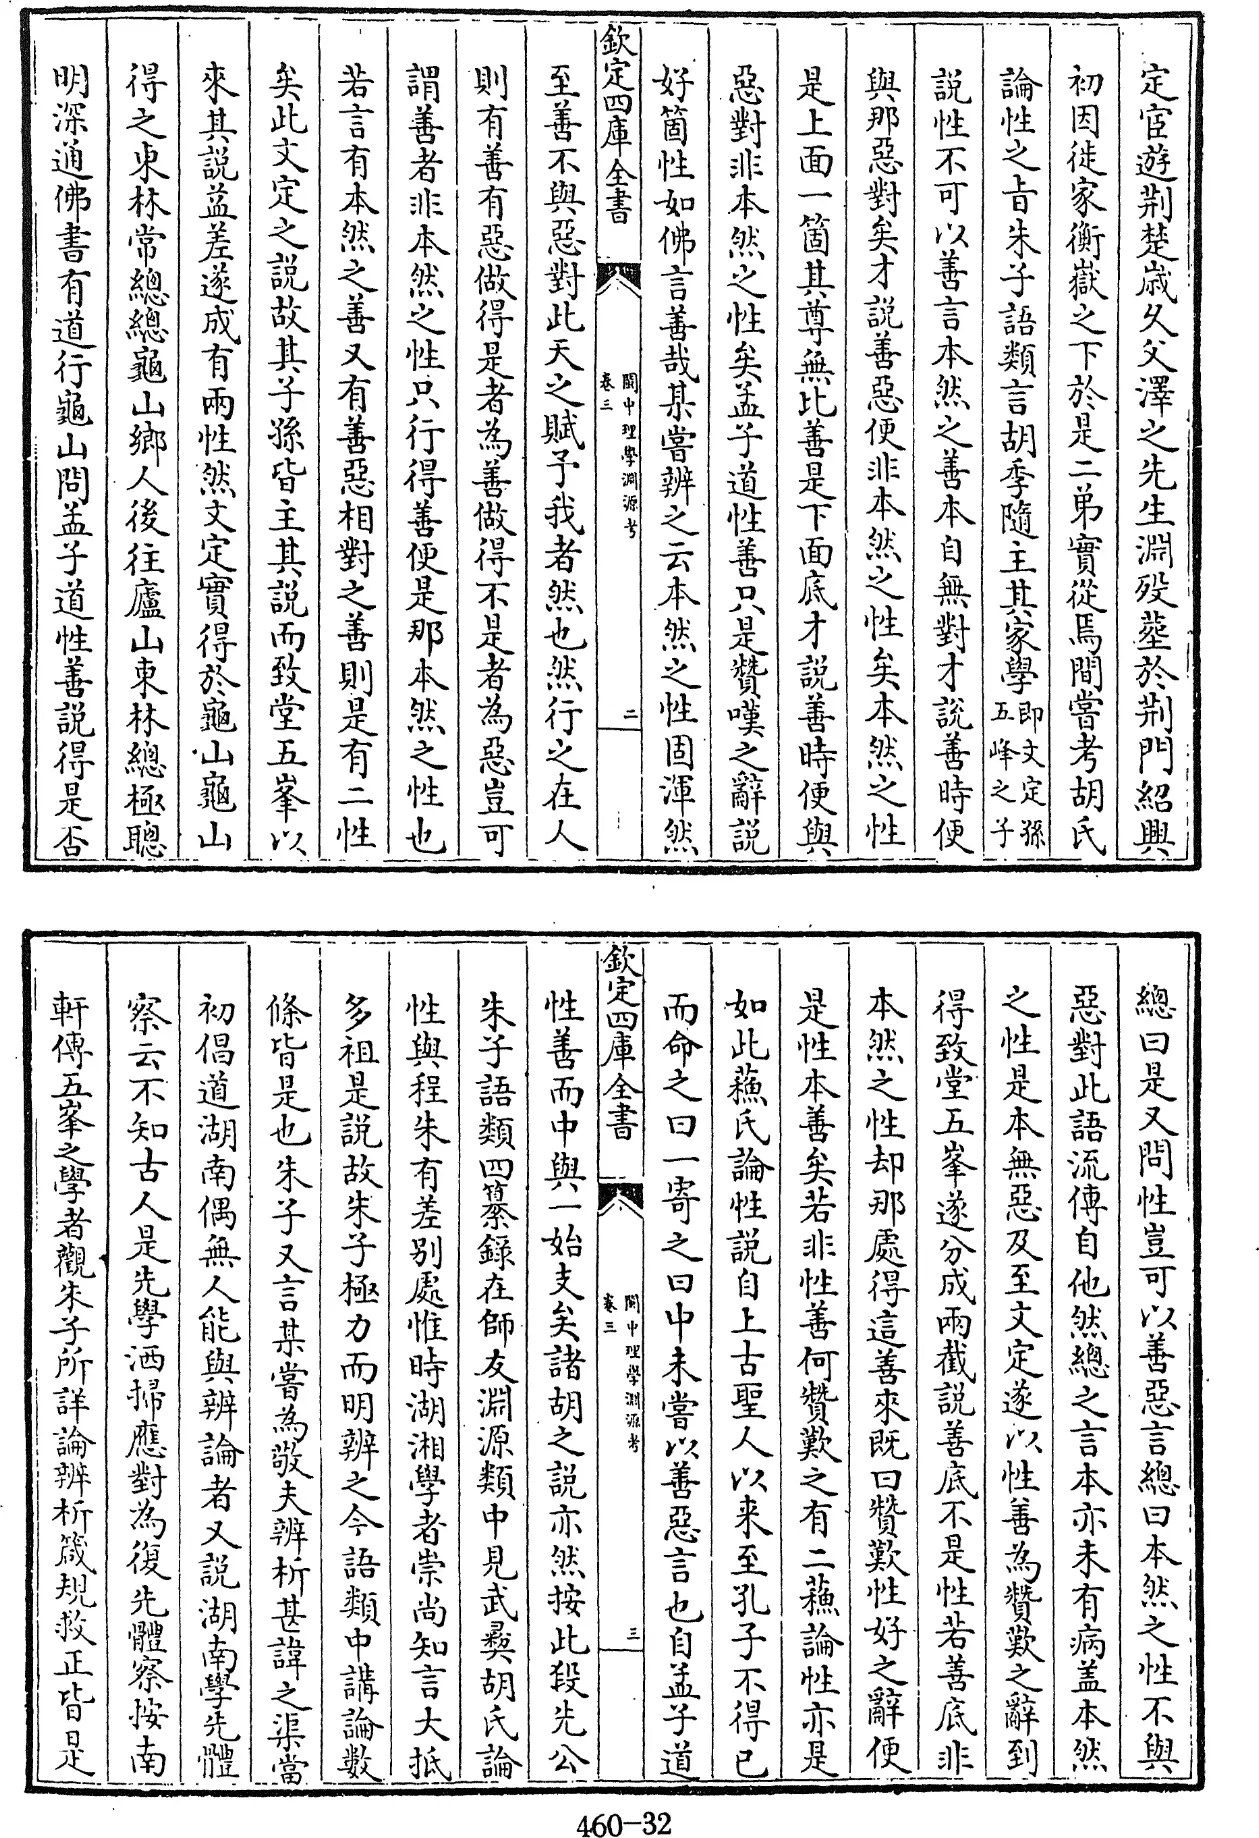 定宦遊荆楚歲久父澤之先生淵殁塟於荆門紹興
初因徙家衡嶽之下於是二弟實從焉間嘗考胡氏
論性之旨朱子語類言胡季隨主其家學即文定孫五峰之子
説性不可以善言本然之善本自無對才説善時便
與那惡對矣才説善惡便非本然之性矣本然之性
是上面一箇其尊無比善是下面底才説善時便與
惡對非本然之性矣孟子道性善只是贊嘆之辭説
好箇性如佛言善哉某嘗辨之云本然之性固渾然
欽定四庫全書
閩中理學淵源考
卷三
二
至善不與惡對此天之賦予我者然也然行之在人
則有善有惡做得是者為善做得不是者為惡豈可
謂善者非本然之性只行得善便是那本然之性也
若言有本然之善又有善惡相對之善則是有二性
矣此文定之説故其子孫皆主其説而致堂五峯以
來其説益差遂成有兩性然文定實得於龜山龜山
得之東林常總總龜山鄉人後往廬山東林總極聰
明深通佛書有道行龜山問孟子道性善説得是否
總曰是又問性豈可以善惡言總曰本然之性不與
惡對此語流傳自他然總之言本亦未有病盖本然
之性是本無惡及至文定遂以性善為贊歎之辭到
得致堂五峯遂分成兩截説善底不是性若善底非
本然之性却那處得這善來既曰贊歎性好之辭便
是性本善矣若非性善何贊歎之有二蘓論性亦是
如此蘓氏論性説自上古聖人以来至孔子不得已
而命之曰一寄之曰中未嘗以善惡言也自孟子道
欽定四庫全書
閩中理學淵源考
卷三
三
性善而中與一始支矣諸胡之説亦然按此段先公
朱子語類四纂錄在師友淵源類中見武彛胡氏論
性與程朱有差别處惟時湖湘學者崇尚知言大抵
多祖是説故朱子極力而明辨之今語類中講論數
條皆是也朱子又言某嘗為敬夫辨析甚諱之渠當
初倡道湖南偶無人能與辨論者又説湖南學先體
察云不知古人是先學洒掃應對為復先體察按南
軒傳五峯之學者觀朱子所詳論辨析箴規救正皆是
460-32